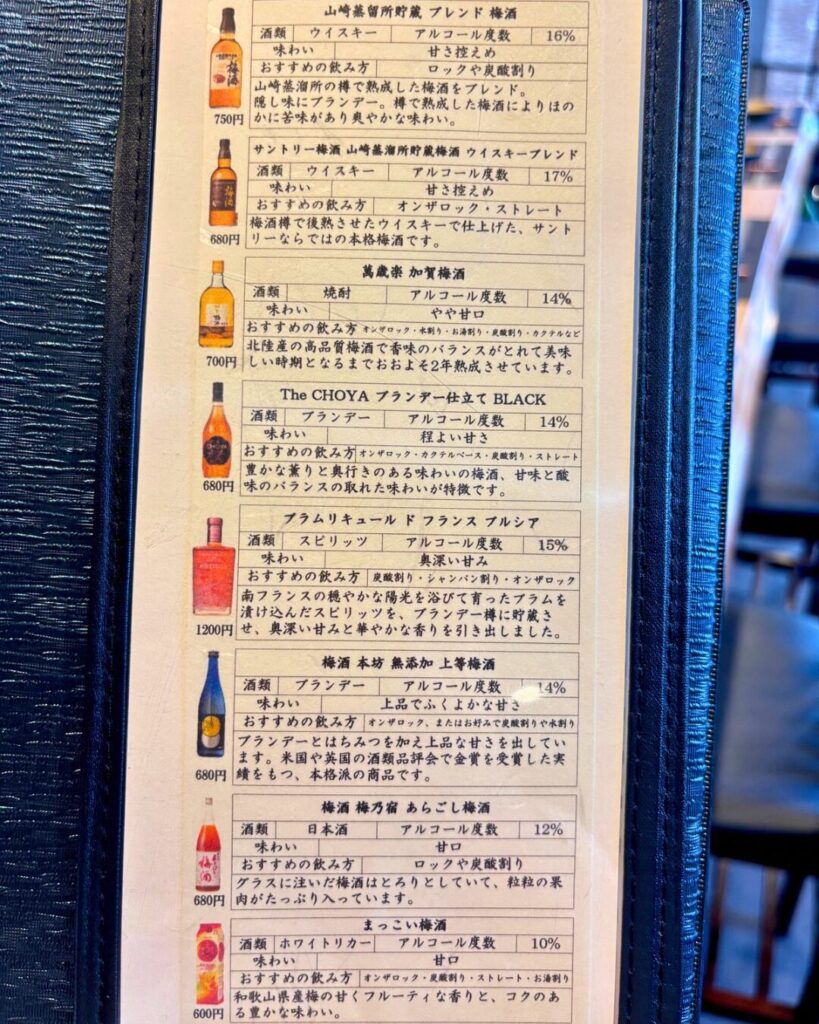 山崎蒸留所貯蔵 ブレンド 梅酒
酒類 ウイスキー アルコール度数 16%
味わい 甘さ控えめ
おすすめの飲み方 ロックや炭酸割り
山崎蒸溜所の樽で熟成した梅酒をブレンド。
隠し味にブランデー。樽で熟成した梅酒によりほの
かに苦味があり爽やかな味わい。
750円
サントリー梅酒 山崎蒸溜所貯蔵梅酒 ウイスキーブレンド
酒類 ウイスキー アルコール度数 17%
味わい 甘さ控えめ
おすすめの飲み方 オンザロック・ストレート
梅酒樽で後熟させたウイスキーで仕上げた、サント
リーならではの本格梅酒です。
680円
萬歳楽 加賀梅酒
酒類 焼酎 アルコール度数 14%
味わい やや甘口
おすすめの飲み方 オンザロック・水割り・お湯割り・炭酸割り・カクテルなど
北陸産の高品質梅酒で香味のバランスがとれて美味
しい時期となるまでおおよそ2年熟成させています。
700円
The CHOYA ブランデー仕立て BLACK
酒類 ブランデー アルコール度数 14%
味わい 程よい甘さ
おすすめの飲み方 オンザロック・カクテルベース・炭酸割り・ストレート
豊かな薫りと奥行きのある味わいの梅酒、甘味と酸
味のバランスの取れた味わいが特徴です。
680円
プラムリキュール ド フランス プルシア
酒類 スピリッツ アルコール度数 15%
味わい 奥深い甘み
おすすめの飲み方 炭酸割り・シャンパン割り・オンザロック
南フランスの穏やかな陽光を浴びて育ったプラムを
漬け込んだスピリッツを、ブランデー樽に貯蔵さ
せ、奥深い甘みと華やかな香りを引き出しました。
1200円
梅酒 本坊 無添加 上等梅酒
酒類 ブランデー アルコール度数 14%
味わい 上品でふくよかな甘さ
おすすめの飲み方 オンザロック、またはお好みで炭酸割りや水割り
ブランデーとはちみつを加え上品な甘さを出してい
ます。米国や英国の酒類品評会で金賞を受賞した実
績をもつ、本格派の商品です。
680円
梅酒 梅乃宿 あらごし梅酒
酒類 日本酒 アルコール度数 12%
味わい 甘口
おすすめの飲み方 ロックや炭酸割り
グラスに注いだ梅酒はとろりとしていて、粒粒の果
肉がたっぷり入っています。
680円
まっこい梅酒
酒類 ホワイトリカー アルコール度数 10%
味わい 甘口
おすすめの飲み方 オンザロック・炭酸割り・ストレート・お湯割り
和歌山県産梅の甘くフルーティな香りと、コクのあ
る豊かな味わい。
600円